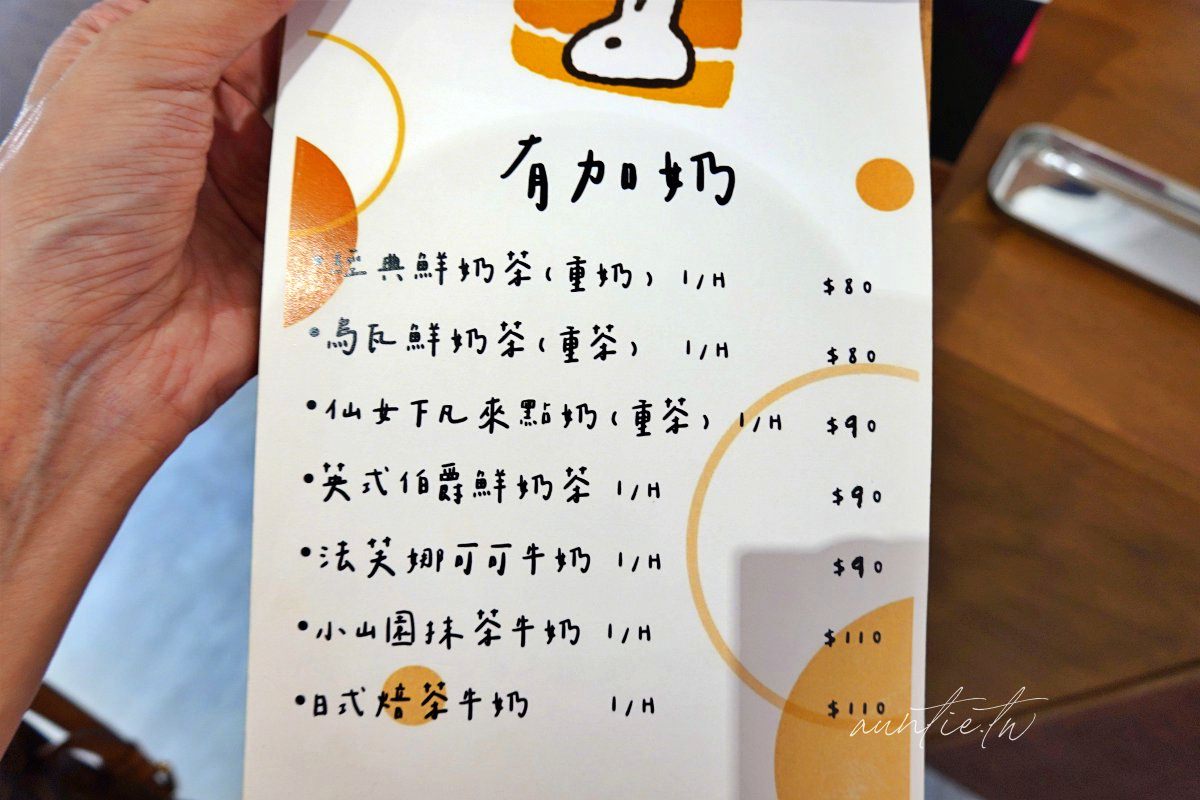 有加奶
•經典鮮奶茶(重奶) I/H $80
•烏瓦鮮奶茶(重茶) I/H $80
•仙女下凡來點奶(重茶) I/H $90
•英式伯爵鮮奶茶 I/H $90
•法芙娜可可牛奶 I/H $90
•小山園抹茶牛奶 I/H $110
•日式焙茶牛奶 I/H $110
auntie.tw